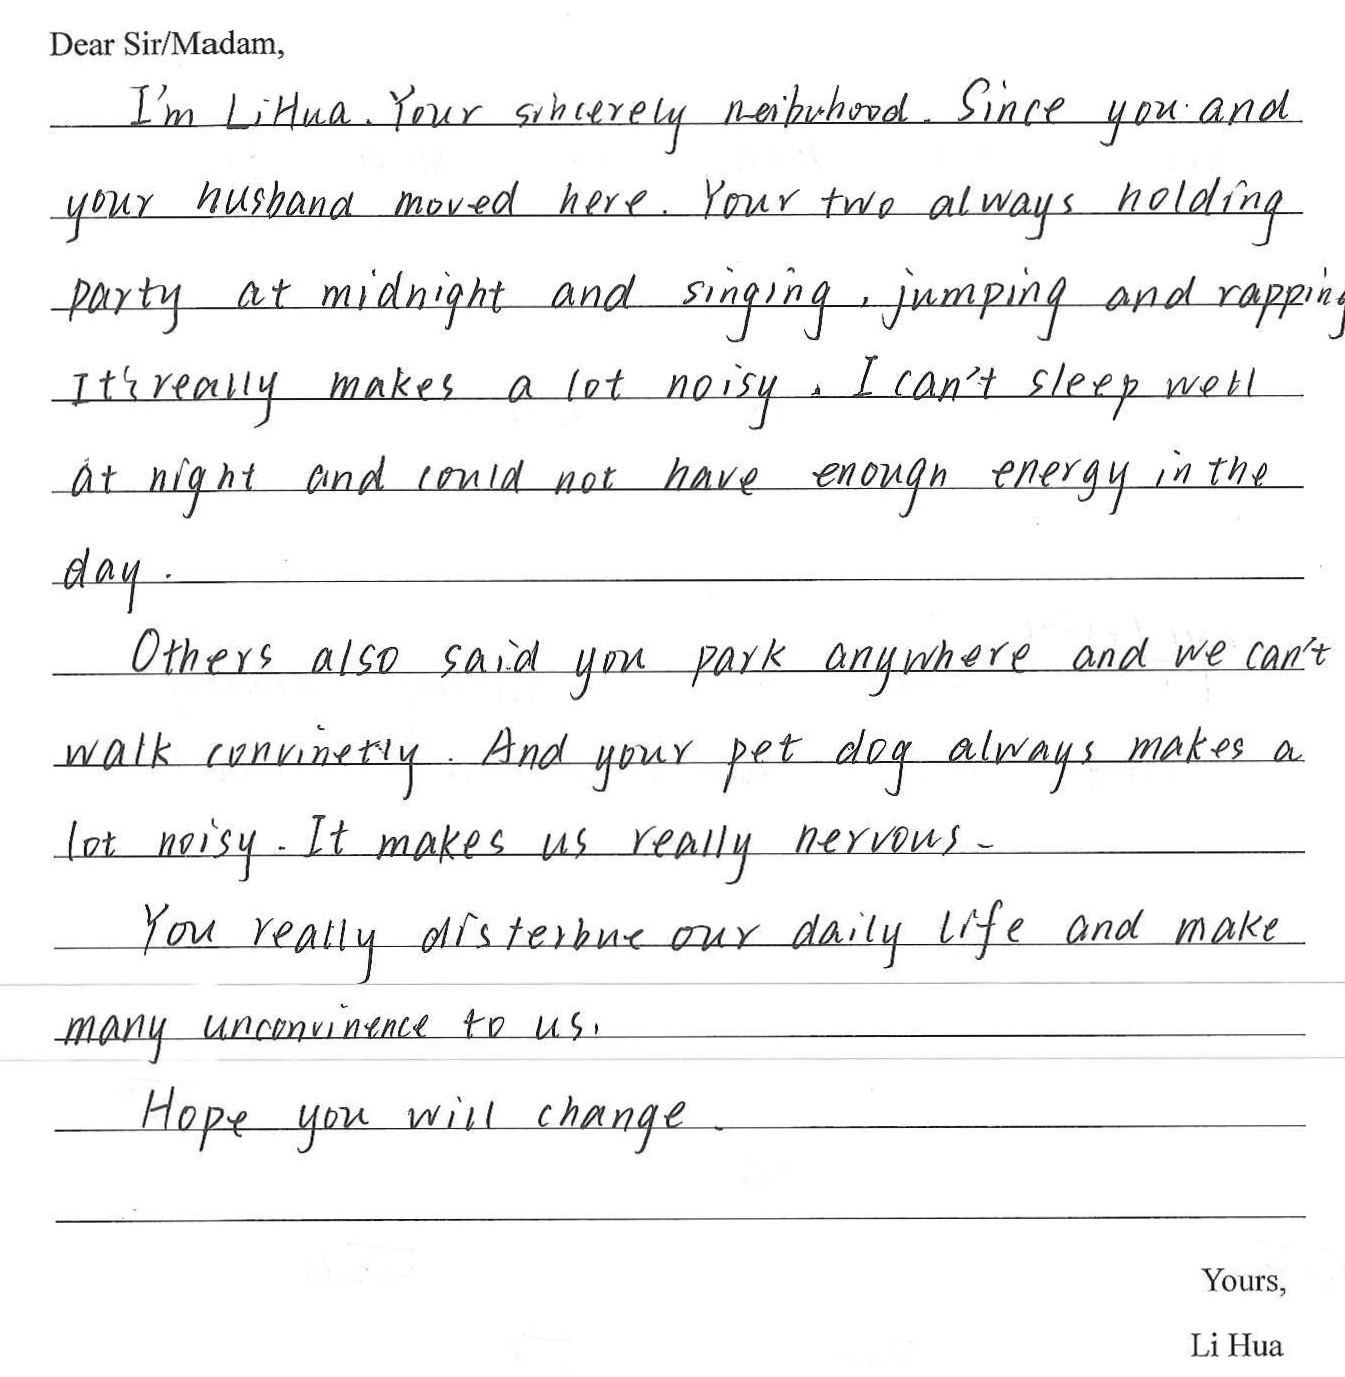 Dear Sir/Madam,
I'm LiHua. Your sincerely neibuhood. Since you and
your husband moved here. Your two always holding
party at midnight and singing, jumping and rapping
It's really makes a lot noisy. I can't sleep well
at night and could not have enough energy in the
day.
Others also said you park anywhere and we can't
walk convinetly. And your pet dog always makes a
lot noisy. It makes us really nervous.
You really disterbue our daily life and make
many unconvinence to us.
Hope you will change.
Yours,
Li Hua